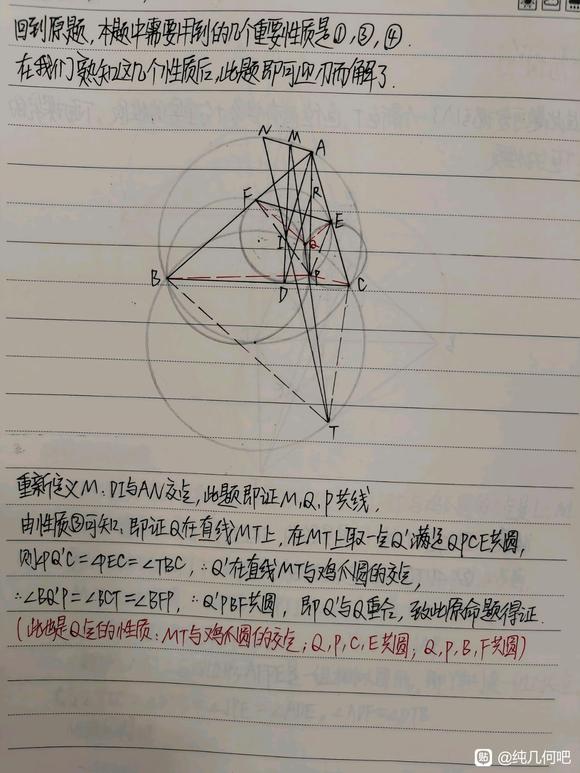 回到原题,本题中需要用到的几个重要性质是①,③,④.
在我们熟知这几个性质后,此题即可迎刃而解了.
N M A
R
F
E
I Q
B D P C
T
重新定义M:DI与AN交点,此题即证M,Q,P共线,
由性质③可知,即证Q在直线MT上,在MT上取一点Q'满足Q'PCE共圆,
则∠PQ'C=∠PEC=∠TBC,∴Q'在直线MT与鸡爪圆的交点,
∴∠BQ'P=∠BCT=∠BFP,∴Q'PBF共圆,即Q'与Q重合,至此原命题得证.
(此也是Q点的性质:MT与鸡爪圆的交点;Q,P,C,E共圆;Q,P,B,F共圆)
贴 @纯几何吧